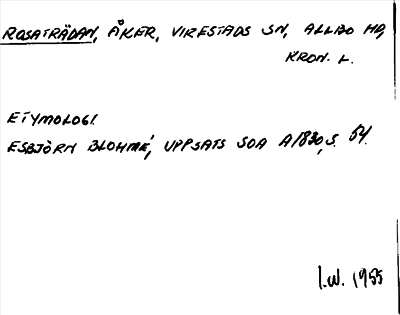 ROSATRÄDAN, ÅKER, VIRESTADS SN, ALLBO HD,
KRON. L.
ETYMOLOGI
ESBJÖRN BLOHMÉ, UPPSATS SOA A1830, S. 54.
I.W. 1955